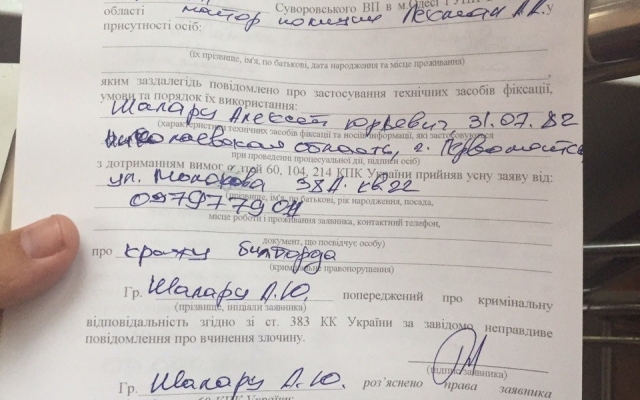 області майор полиции Суворовського ВП в м.Одесі ГУНП у
присутності осіб:
(їх прізвище, ім'я, по батькові, дата народження та місце проживання)
яким заздалегідь повідомлено про застосування технічних засобів фіксації,
умови та порядок їх використання:
Шалару Алексей Юрьевич 31.07.82
(характеристики технічних засобів фіксації та носіїв інформації, які застосовуються
Николаевская область, г. Первомайск
при проведенні процесуальної дії, підписи осіб)
з дотриманням вимог статей 60, 104, 214 КПК України прийняв усну заяву від:
ул. Молокова 38А кв.22
(прізвище, ім'я, по батькові, рік народження, посада,
місце роботи і проживання заявника, контактний телефон,
документ, що посвідчує особу)
про кражу билборда
(кримінальне правопорушення)
Гр. Шалару А.Ю. попереджений про кримінальну
(прізвище, ініціали заявника)
відповідальність згідно зі ст. 383 КК України за завідомо неправдиве
повідомлення про вчинення злочину.
(підпис заявника)
Гр. Шалару А.Ю. роз'яснено права заявника
60 КПК України